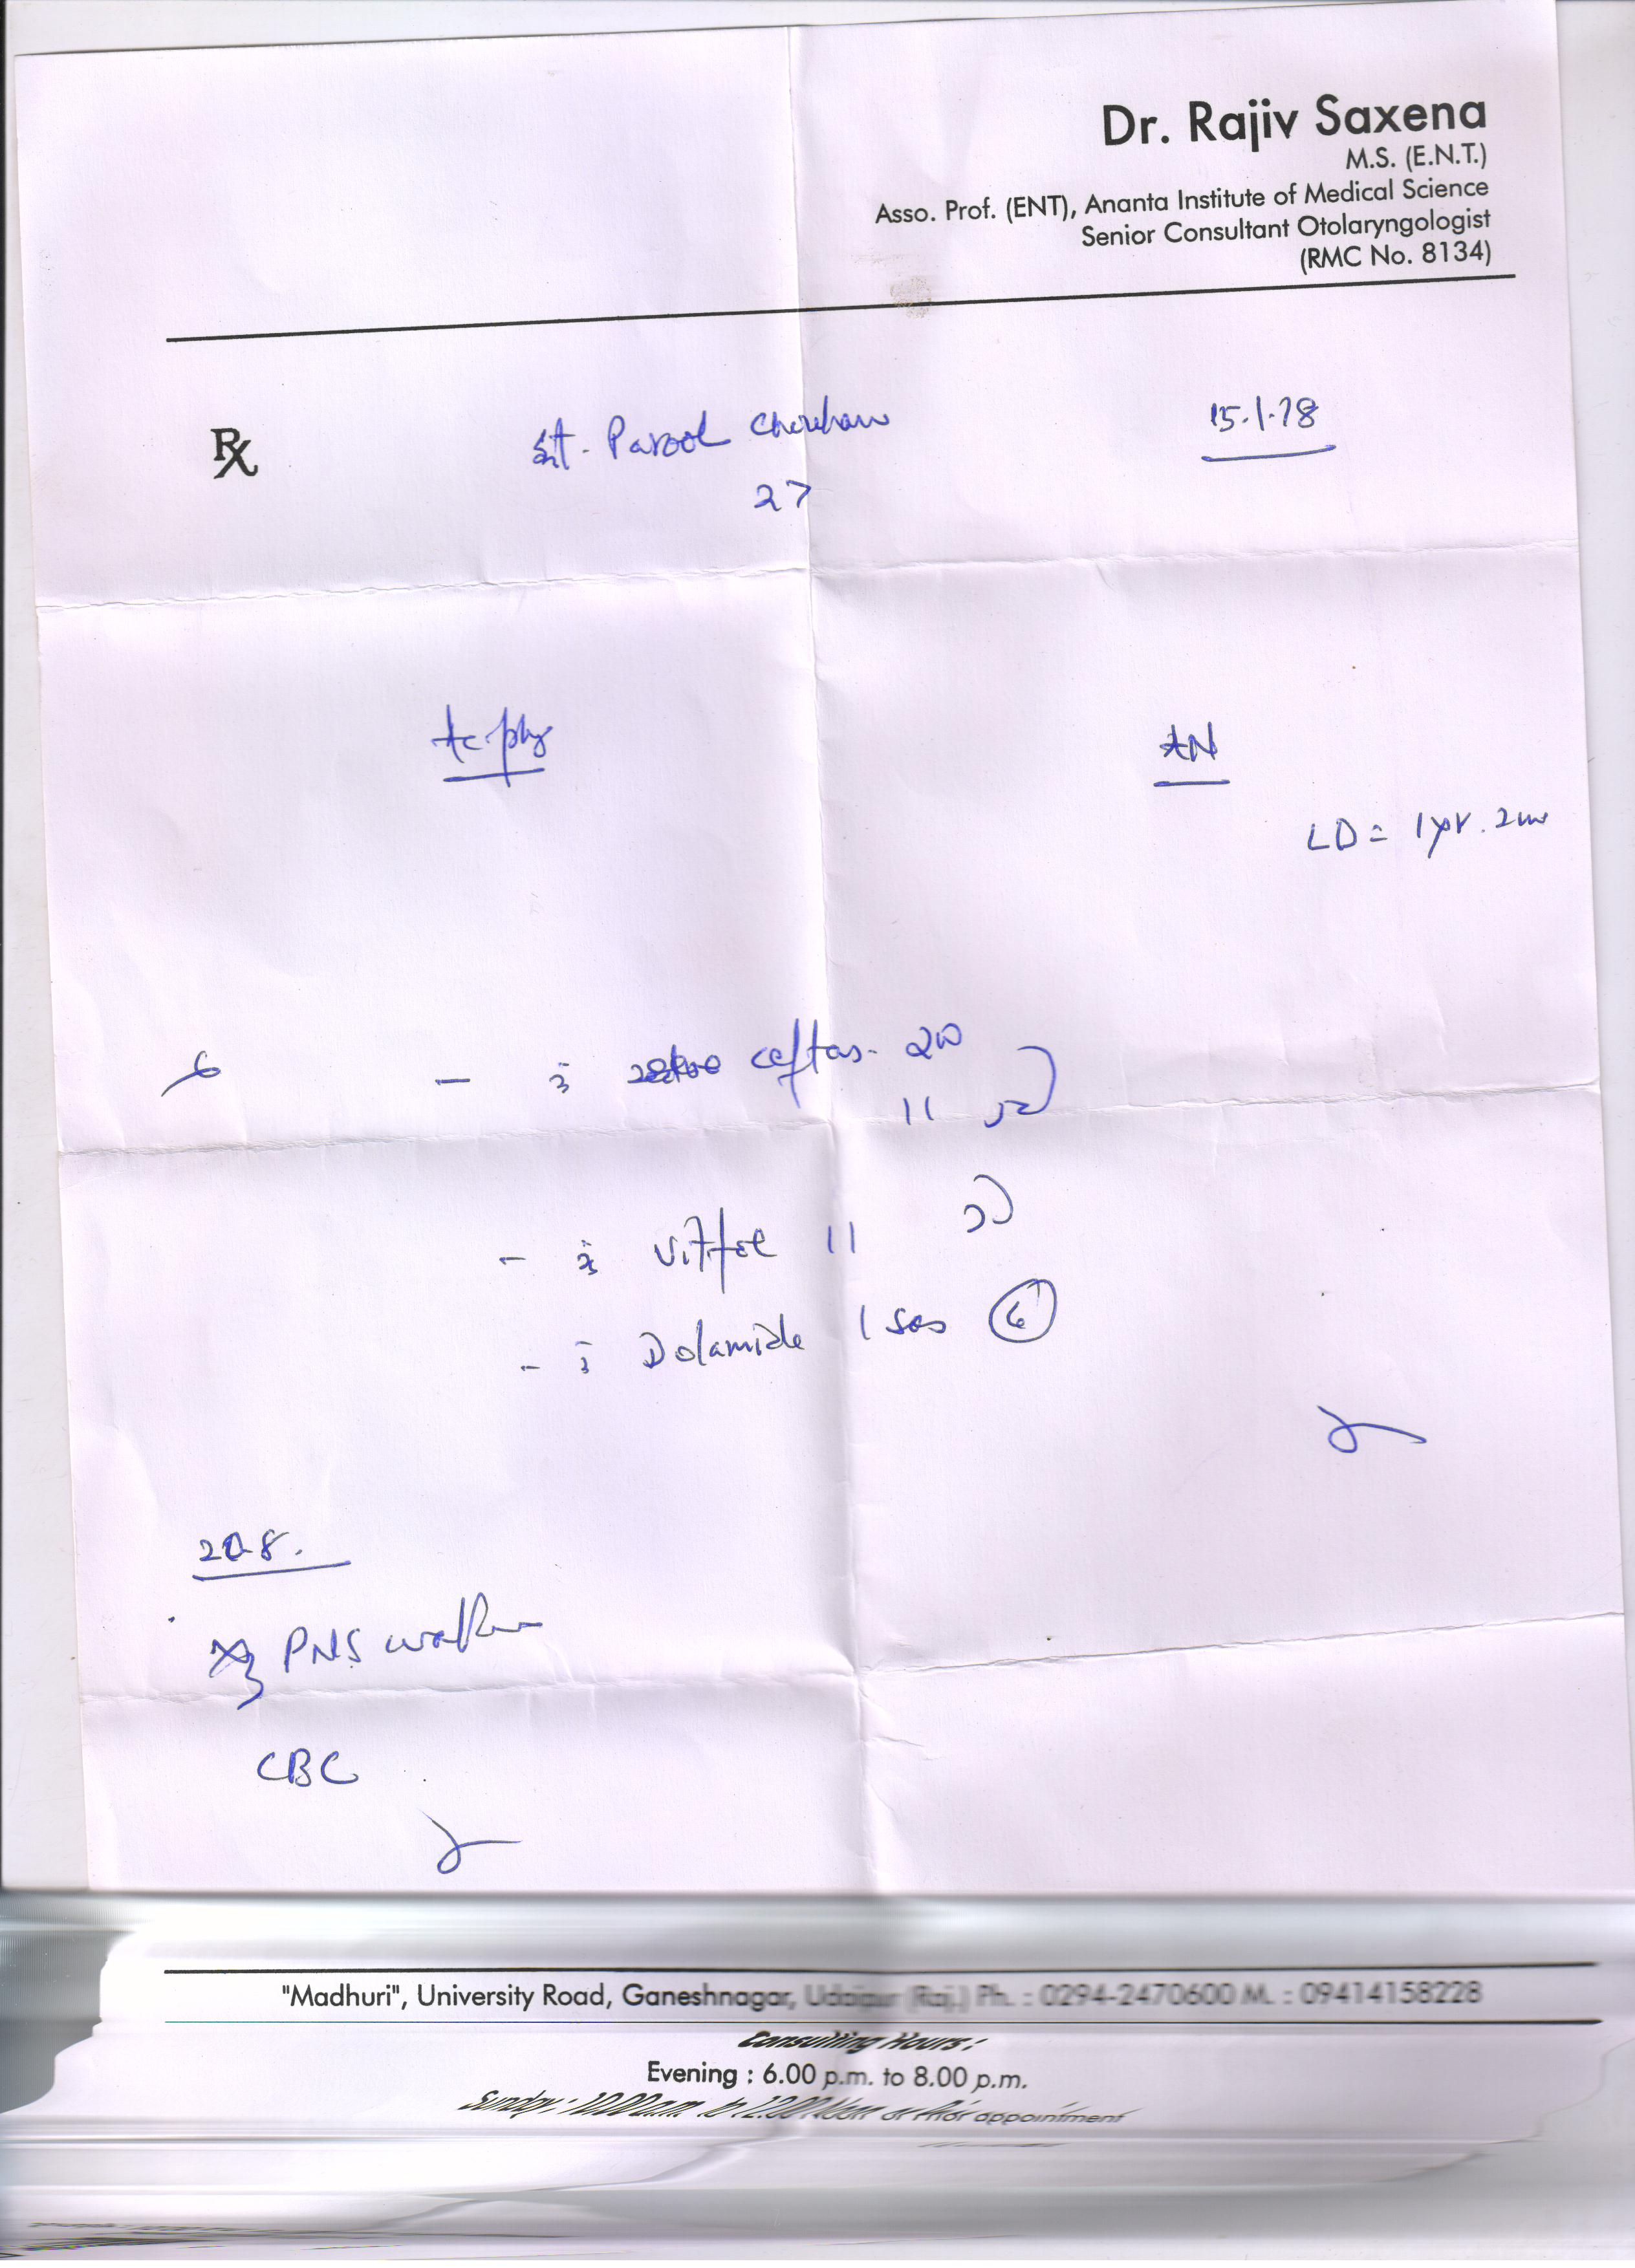 Dr. Rajiv Saxena
M.S. (E.N.T.)
Asso. Prof. (ENT), Ananta Institute of Medical Science
Senior Consultant Otolaryngologist
(RMC No. 8134)
Rx Parool 15.1.18
27
Ac. phy AN
LD = 1 yr. 2m
ceftas. 200
11
Vitfol 11
Dolamide 1 sos 6
20.8.
PNS
CBC
"Madhuri", University Road, Ganeshnagar, Udaipur (Raj.) Ph. : 0294-2470600 M. : 09414158228
Consulting Hours :
Evening : 6.00 p.m. to 8.00 p.m.
Sunday : 10.00 a.m. to 12.00 Noon or Prior appointment